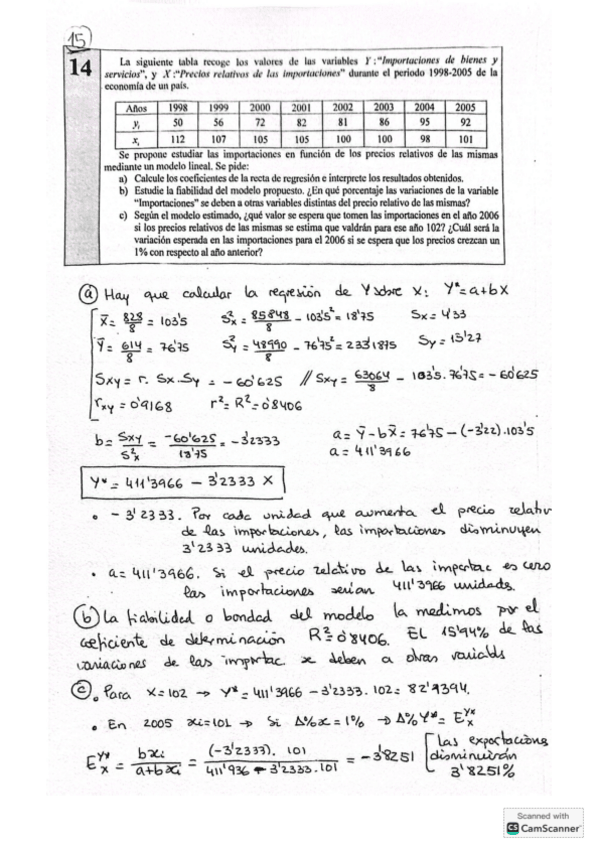 15
14
La siguiente tabla recoge los valores de las variables Y:"Importaciones de bienes y
servicios", y X:"Precios relativos de las importaciones" durante el periodo 1998-2005 de la
economía de un país.
Años 1998 1999 2000 2001 2002 2003 2004 2005
yᵢ 50 56 72 82 81 86 95 92
xᵢ 112 107 105 105 100 100 98 101
Se propone estudiar las importaciones en función de los precios relativos de las mismas
mediante un modelo lineal. Se pide:
a) Calcule los coeficientes de la recta de regresión e interprete los resultados obtenidos.
b) Estudie la fiabilidad del modelo propuesto. ¿En qué porcentaje las variaciones de la variable
"Importaciones" se deben a otras variables distintas del precio relativo de las mismas?
c) Según el modelo estimado, ¿qué valor se espera que tomen las importaciones en el año 2006
si los precios relativos de las mismas se estima que valdrán para ese año 102? ¿Cuál será la
variación esperada en las importaciones para el 2006 si se espera que los precios crezcan un
1% con respecto al año anterior?
a) Hay que calcular la regresión de Y sobre X: Y* = a+bX
X̄ = 828/8 = 103'5 S²x = 85848/8 - 103'5² = 18'75 Sx = 4'33
Ȳ = 614/8 = 76'75 S²y = 48990/8 - 76'75² = 233'1875 Sy = 15'27
Sxy = r. Sx. Sy = -60'625 // Sxy = 63064/8 - 103'5. 76'75 = -60'625
rxy = 0'9168 r² = R² = 0'8406
b = Sxy/S²x = -60'625/18'75 = -3'2333 a = Ȳ - bX̄ = 76'75 - (-3'22). 103'5
a = 411'3966
Y* = 411'3966 - 3'2333 X
• -3'2333. Por cada unidad que aumenta el precio relativ
de las importaciones, las importaciones disminuyen
3'2333 unidades.
• a = 411'3966. Si el precio relativo de las importac es cero
las importaciones serían 411'3966 unidads.
b) La fiabilidad o bondad del modelo la medimos por el
coeficiente de determinación R² = 0'8406. EL 15'94% de las
variaciones de las importac. se deben a otras variabls
c) • Para X=102 → Y* = 411'3966 - 3'2333. 102 = 82'9394.
• En 2005 xi=101 → Si Δ%x = 1% → Δ%Y* = E^Y*_x
E^Y*_x = bxi/a+bxi = (-3'2333). 101/411'936 - 3'2333.101 = -3'8251 [las exportacions
disminuirán
3'8251%
Scanned with
CS CamScanner